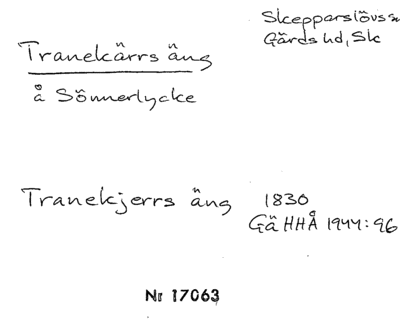 Tranekärrs äng
Skepparslövs sn
Gärds hd, Sk
å Sönnerlycke
Tranekjerrs äng 1830
Gä HHÅ 1944:96
Nr 17063